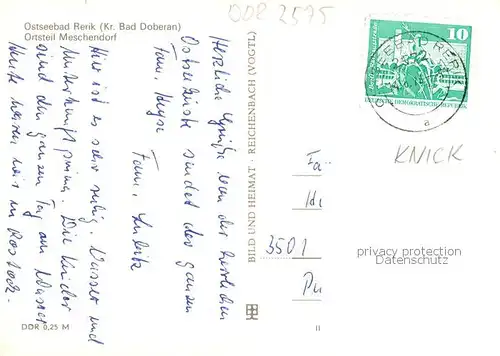 DDR 2575
Ostseebad Rerik (Kr. Bad Doberan)
Ortsteil Meschendorf
Herzliche Grüße von der herrlichen
Ostseeküste sendet der ganzen
Fam.
Fam.
Hier ist es sehr ruhig. Wasser und
Unterkunft prima. Die Kinder
sind den ganzen Tag am Wasser
Heute waren wir in Rostock.
DDR 0,25 M
BILD UND HEIMAT · REICHENBACH (VOGTL)
II
10
DEUTSCHE DEMOKRATISCHE REPUBLIK
OSTSEEBAD RERIK
a
KNICK
Fa
3501
privacy protection
Datenschutz